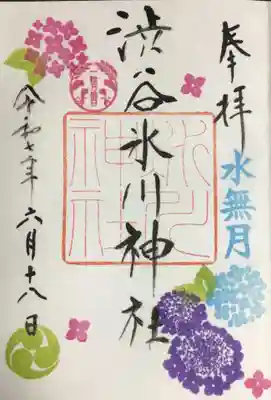 奉拝
水無月
渋谷氷川神社
氷川
神社
令和七年六月十八日